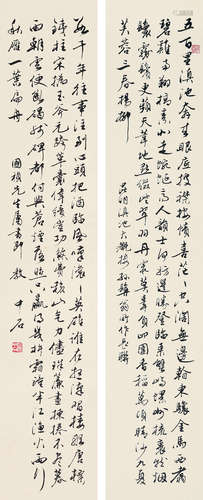 五百里滇池奔來眼底披襟岸幘喜茫茫空闊無邊東驤金馬西翥
碧雞南翔縞素北走蜿蜒高人韻士何妨選勝登臨趁蟹嶼螺洲梳裹就風鬟
霧鬢更蘋天葦地點綴些翠羽丹霞莫孤負四圍香稻萬頃晴沙九夏
芙蓉三春楊柳 昆明滇池大觀樓孫髯翁所作長聯
數千年往事注到心頭把酒凌虛嘆滾滾英雄誰在想漢習樓船唐標
鐵柱宋揮玉斧元跨革囊偉烈豐功費盡移山氣力儘珠簾畫棟捲不盡暮
雨朝雲便斷碣殘碑都付與蒼煙落照只贏得幾杵疏鐘半江漁火兩行
秋雁一葉扁舟 國楨先生屬書即教 中石